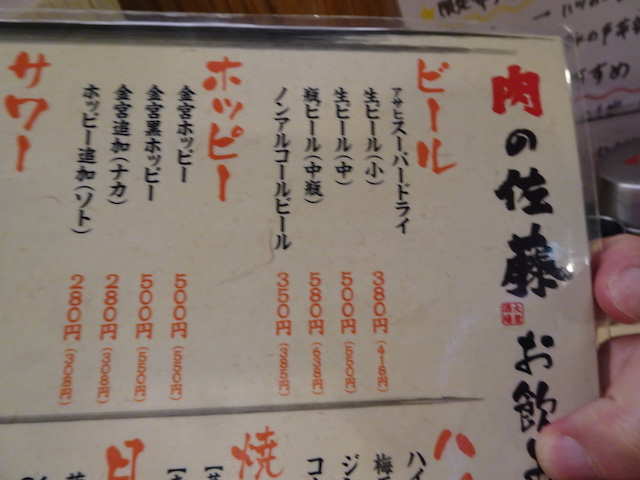 肉の佐藤 お飲み
ビール
アサヒスーパードライ
生ビール(小) 380円(418円)
生ビール(中) 500円(550円)
瓶ビール(中瓶) 580円(638円)
ノンアルコールビール 350円(385円)
ホッピー
金宮ホッピー 500円(550円)
金宮黒ホッピー 500円(550円)
金宮追加(ナカ) 280円(308円)
ホッピー追加(ソト) 280円(308円)
サワー
ハイ
梅
ジン
コ
焼